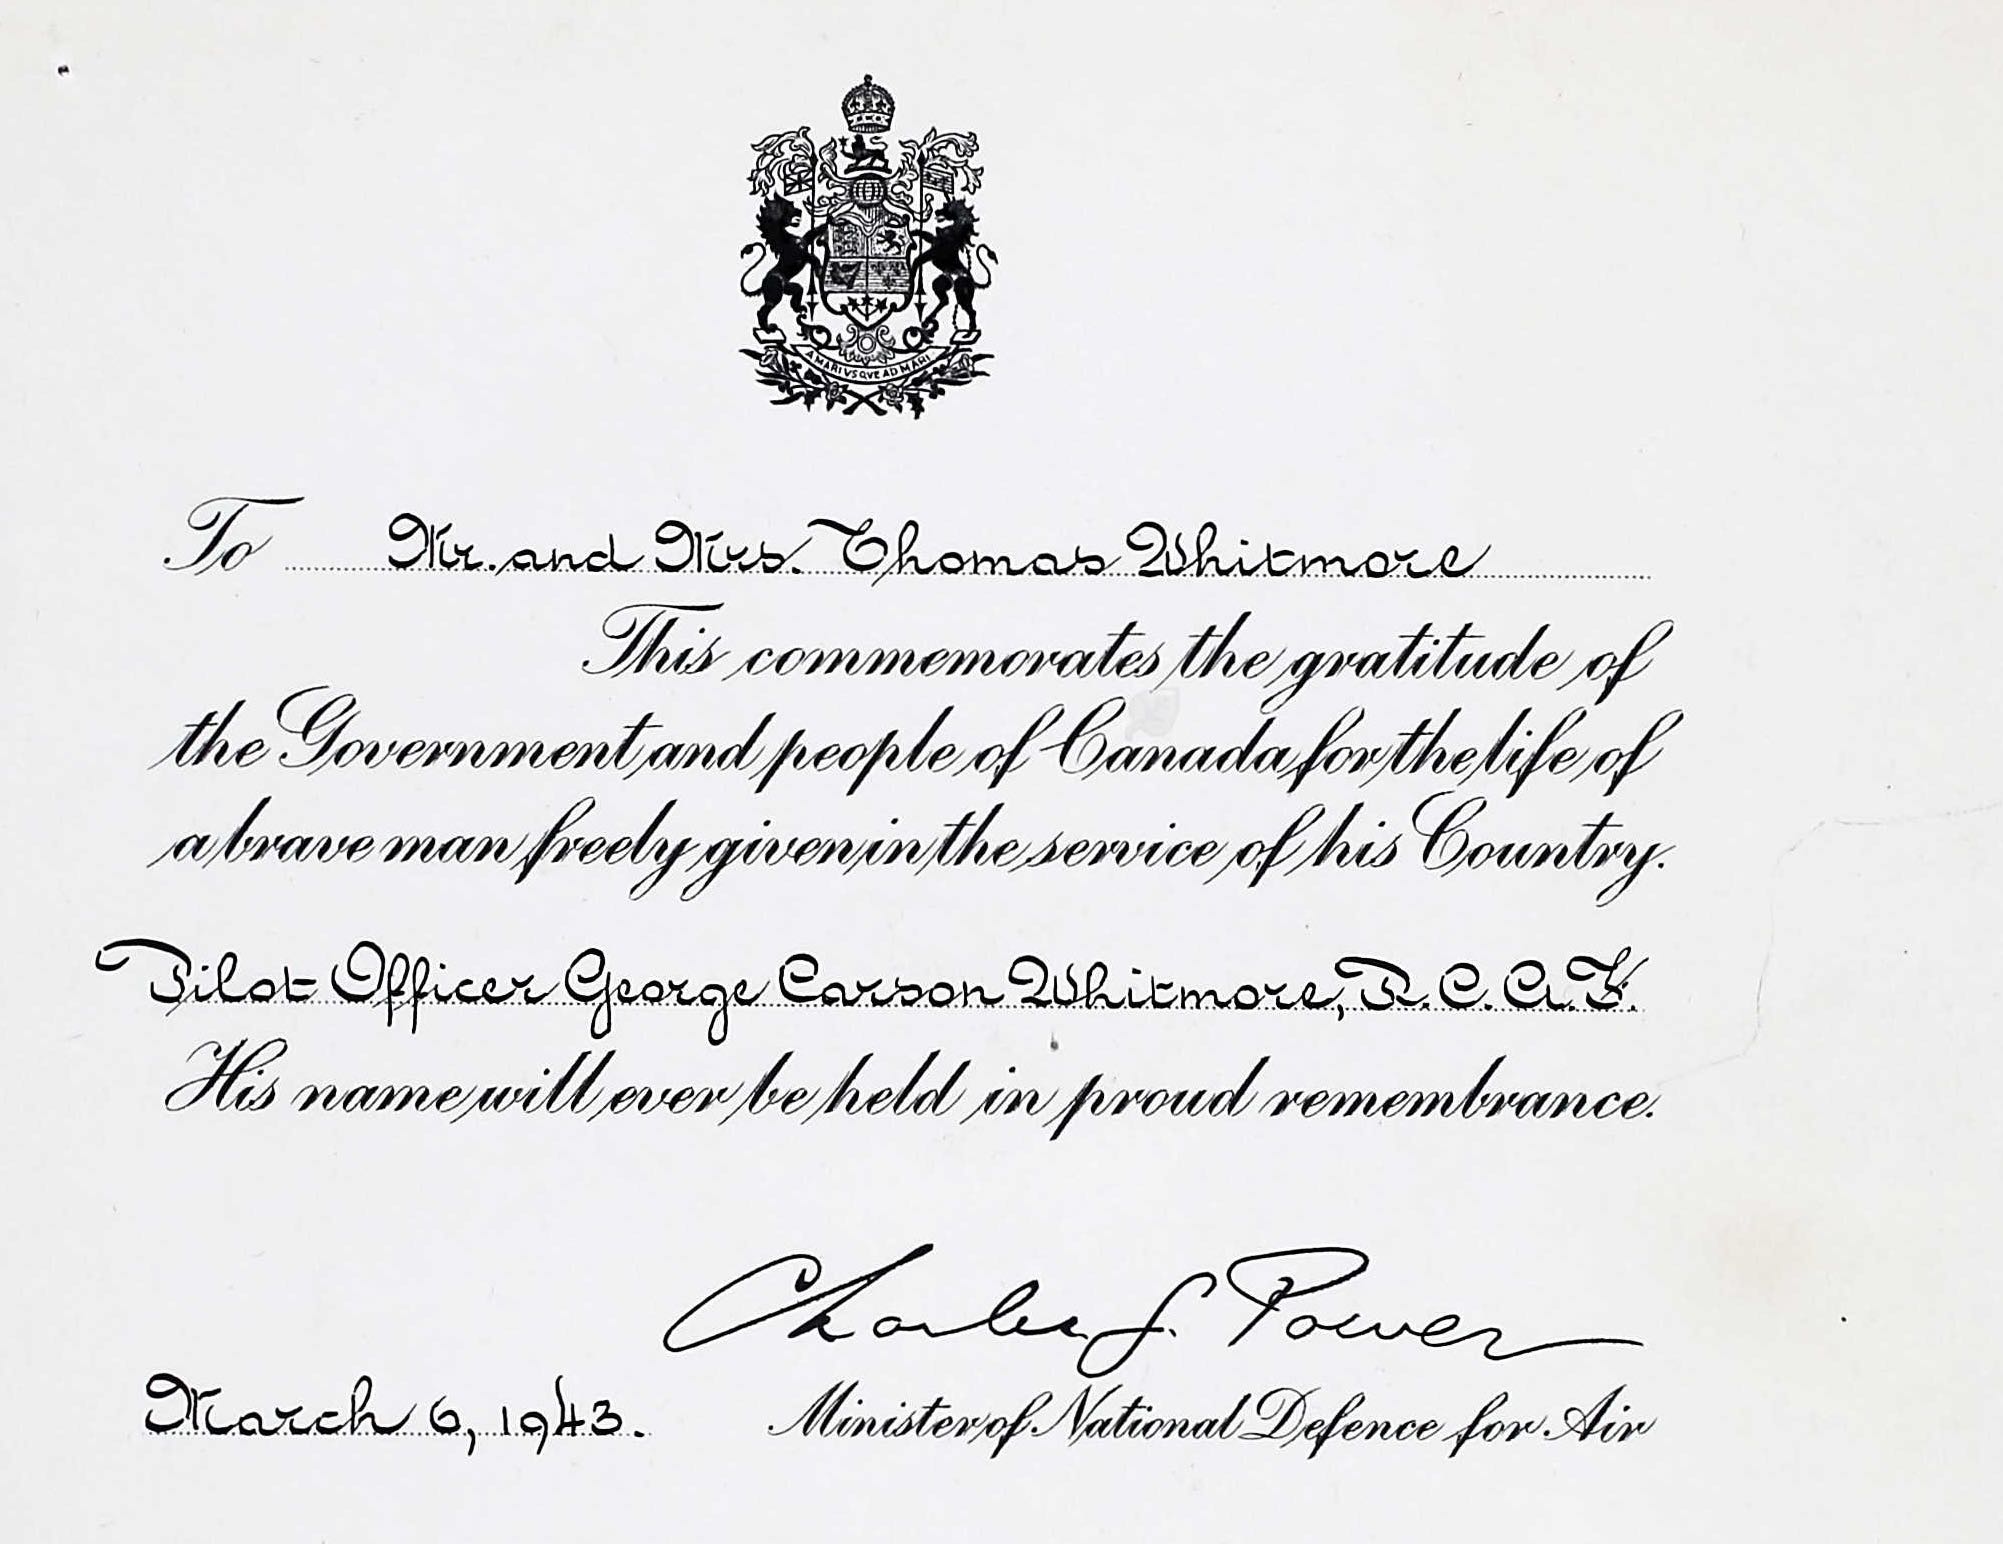 A MARI VSQVE AD MARI
To Mr. and Mrs. Thomas Whitmore
This commemorates the gratitude of
the Government and people of Canada for the life of
a brave man freely given in the service of his Country.
Pilot Officer George Carson Whitmore, R.C.A.F.
His name will ever be held in proud remembrance.
Charles G. Power
March 6, 1943. Minister of National Defence for Air